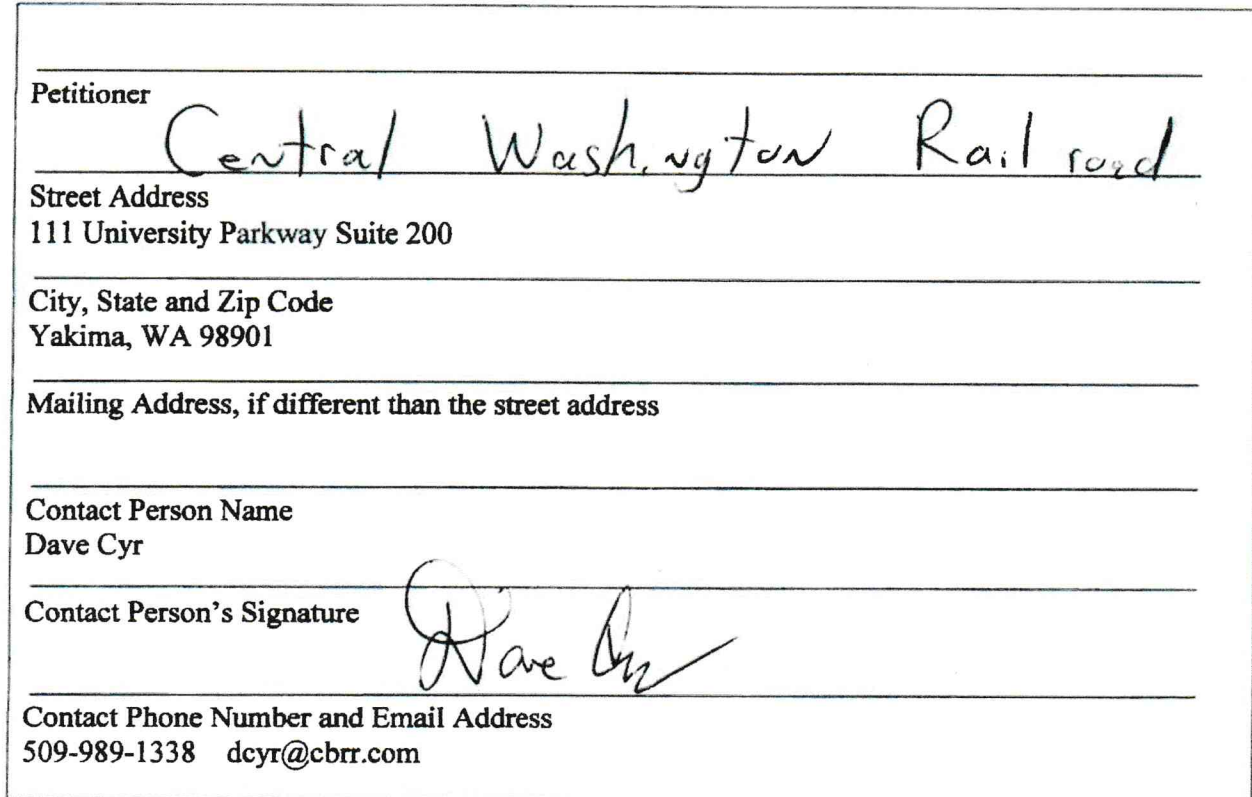 Petitioner
Central Washington Railroad
Street Address
111 University Parkway Suite 200
City, State and Zip Code
Yakima, WA 98901
Mailing Address, if different than the street address
Contact Person Name
Dave Cyr
Contact Person's Signature
Dave Cyr
Contact Phone Number and Email Address
509-989-1338 dcyr@cbrr.com